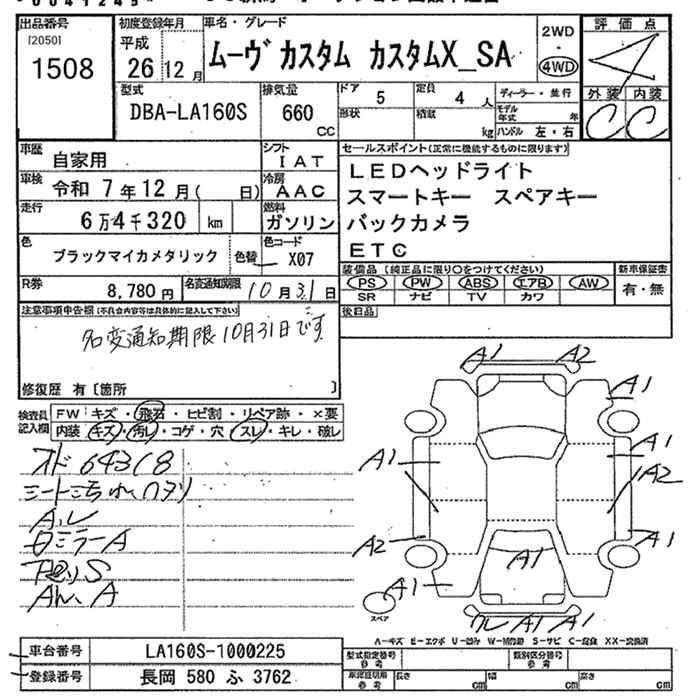 出品番号
[2050]
1508
初度登録年月
平成
26 12月
車名・グレード
ムーヴカスタム カスタムX_SA
2WD
4WD
評価点
4
外装 内装
C C
型式
DBA-LA160S
排気量
660
CC
ドア
5
定員
4 人
形状
積載
kg
ディーラー・並行
モデル年式 年
ハンドル 左・右
車歴
自家用
シフト
IAT
車検
令和 7年12月( 日)
冷房
AAC
走行
6万4千320 km
燃料
ガソリン
色
ブラックマイカメタリック
色替
色コード
X07
R券
8,780円
名変通知期限
10月31日
セールスポイント(正常に機能するものに限ります)
LEDヘッドライト
スマートキー スペアキー
バックカメラ
ETC
装備品(純正品に限り○をつけてください)
PS PW ABS エアB AW
SR ナビ TV カワ
新車保証書
有・無
後日品
注意事項申告欄(不具合内容等は具体的に記入して下さい)
名変通知期限10月31日です
修復歴 有〔箇所 〕
検査員
記入欄
FW キズ・飛石・ヒビ割・リペア跡・×要
内装 キズ・汚レ・コゲ・穴・スレ・キレ・破レ
シート汚れ、ヘタリ
A1 A2
A1
A1
A1
A2
A2
A1
A1
A1
A1 A1
スペア
A−キズ E−エクボ U−凹み W−補修跡 S−サビ C−腐食 XX−交換済
車台番号
LA160S-1000225
登録番号
長岡 580 ふ 3762
型式指定番号
参考
類別区分番号
参考
車検証明用
参考
長さ cm
幅 cm
高さ cm